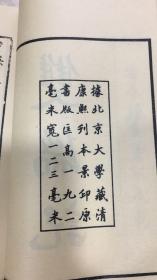 據北京大學藏清
康熙刊本景印原
書版匡高一九二
毫米寬一二三毫米